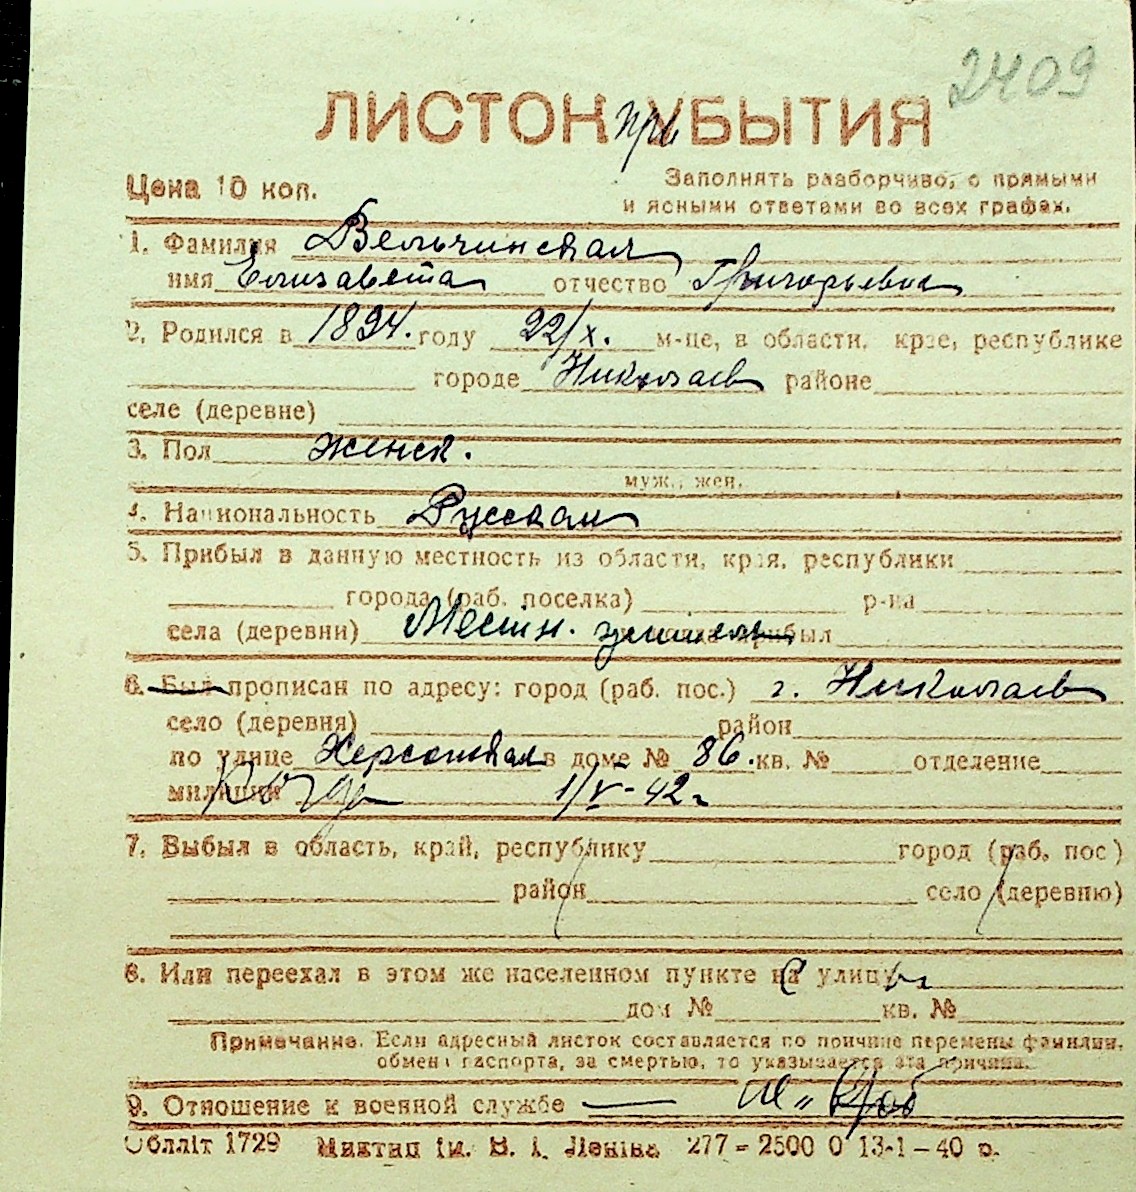 2409
ЛИСТОК прибЫТИЯ
Цена 10 коп.
Заполнять разборчиво, с прямыми
и ясными ответами во всех графах.
1. Фамилия Вельчинская
имя Елизавета отчество Григорьевна
2. Родился в 1894. году 22/X. м-це, в области, крае, республике
городе Николаев районе
селе (деревне)
3. Пол женск.
муж., жен.
4. Национальность Русская
5. Прибыл в данную местность из области, края, республики
города (раб. поселка) р-на
села (деревни) Местн. житель прибыл
6. Был прописан по адресу: город (раб. пос.) г. Николаев
село (деревня) район
по улице Херсонская в доме № 86. кв. № отделение
милиции 1/V-42 г
7. Выбыл в область, край, республику город (раб. пос)
район село (деревню)
8. Или переехал в этом же населенном пункте на улицу
дом № кв. №
Примечание. Если адресный листок составляется по причине перемены фамилии,
обмена паспорта, за смертью, то указывается эта причина.
9. Отношение к военной службе —
Облліт 1729 Миктип ім. В. І. Леніна 277 - 2500 0 13-1-40 р.